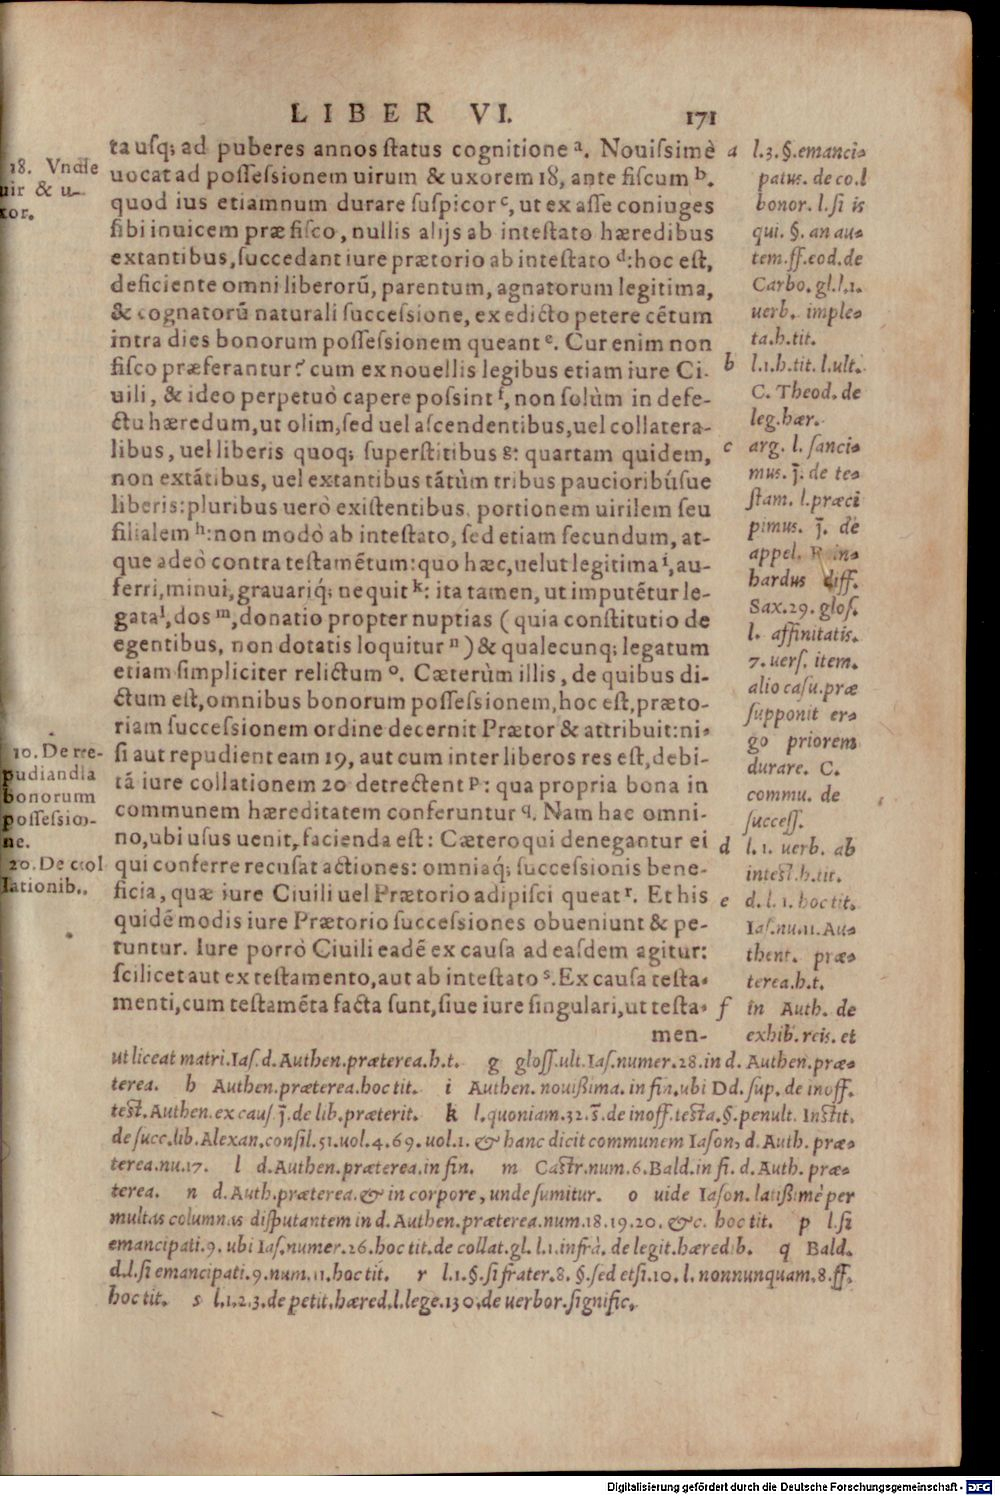 LIBER VI. 171
ta usq; ad puberes annos status cognitione ª. Nouissimè
uocat ad possessionem uirum & uxorem 18, ante fiscum ᵇ.
quod ius etiamnum durare suspicor ᶜ, ut ex asse coniuges
sibi inuicem præ fisco, nullis alijs ab intestato hæredibus
extantibus, succedant iure prætorio ab intestato ᵈ: hoc est,
deficiente omni liberorũ, parentum, agnatorum legitima,
& cognatorũ naturali successione, ex edicto petere cẽtum
intra dies bonorum possessionem queant ᵉ. Cur enim non
fisco præferantur? cum ex nouellis legibus etiam iure Ci-
uili, & ideo perpetuò capere possint ᶠ, non solùm in defe-
ctu hæredum, ut olim, sed uel ascendentibus, uel collatera-
libus, uel liberis quoq; superstitibus ᵍ: quartam quidem,
non extãtibus, uel extantibus tãtùm tribus paucioribúsue
liberis: pluribus uerò existentibus, portionem uirilem seu
filialem ʰ: non modò ab intestato, sed etiam secundum, at-
que adeò contra testamẽtum: quo hæc, uelut legitima ⁱ, au-
ferri, minui, grauariq́; nequit ᵏ: ita tamen, ut imputẽtur le-
gata ˡ, dos ᵐ, donatio propter nuptias (quia constitutio de
egentibus, non dotatis loquitur ⁿ) & qualecunq; legatum
etiam simpliciter relictum ᵒ. Cæterùm illis, de quibus di-
ctum est, omnibus bonorum possessionem, hoc est, præto-
riam successionem ordine decernit Prætor & attribuit: ni-
si aut repudient eam 19, aut cum inter liberos res est, debi-
tã iure collationem 20 detrectent ᵖ: qua propria bona in
communem hæreditatem conferuntur q. Nam hac omni-
no, ubi usus uenit, facienda est: Cæteroqui denegantur ei
qui conferre recusat actiones: omniaq́; successionis bene-
ficia, quæ iure Ciuili uel Prætorio adipisci queat ʳ. Et his
quidẽ modis iure Prætorio successiones obueniunt & pe-
tuntur. Iure porrò Ciuili eadẽ ex causa ad easdem agitur:
scilicet aut ex testamento, aut ab intestato ˢ. Ex causa testa-
menti, cum testamẽta facta sunt, siue iure singulari, ut testa-
men-
18. Vnde
uir & u-
xor.
10. De re-
pudianda
bonorum
possessio-
ne.
20. De col
lationib..
a l.3.§.emanci-
patus. de co.l
bonor. l. si is
qui. §. an au-
tem. ff. eod. de
Carbo. gl. l,1.
uerb. imple-
ta. h. tit.
b l.1.h.tit. l.ult.
C. Theod. de
leg. hær.
c arg. l. sanci-
mus. J̃. de te-
stam. l. præci
pimus. J̃. de
appel.
hardus diff.
Sax. 29. glos.
l. affinitatis.
7. uers. item.
alio casu. præ
supponit er-
go priorem
durare. C.
commu. de
success.
d l. 1. uerb. ab
intest. h. tit.
e d. l. 1. hoc tit.
Ias. nu. 11. Au-
thent. præ-
terea. h. t.
f in Auth. de
exhib. reis. et
ut liceat matri. Ias. d. Authen. præterea. h. t. g gloss. ult. Ias. numer. 28. in d. Authen. præ-
terea. h Authen. præterea. hoc tit. i Authen. nouissima. in fin. ubi Dd. sup. de inoff.
test. Authen. ex caus. J̃. de lib. præterit. k l. quoniam. 32. s̃. de inoff. testa. §. penult. Instit.
de succ. lib. Alexan. consil. 51. uol. 4. 69. uol. 1. & hanc dicit communem Iason, d. Auth. præ-
terea. nu. 17. l d. Authen. præterea. in fin. m Castr. num. 6. Bald. in fi. d. Auth. præ-
terea. n d. Auth. præterea. & in corpore, unde sumitur. o uide Iason. latissimè per
multas columnas disputantem in d. Authen. præterea. num. 18. 19. 20. &c. hoc tit. p l. si
emancipati. 9. ubi Ias. numer. 26. hoc tit. de collat. gl. l. 1. infrà. de legit. hæredib. q Bald.
d. l. si emancipati. 9. num. 11. hoc tit. r l. 1. §. si frater. 8. §. sed etsi. 10. l. nonnunquam. 8. ff.
hoc tit. s l. 1. 2. 3. de petit. hæred. l. lege. 130. de uerbor. signific.
Digitalisierung gefördert durch die Deutsche Forschungsgemeinschaft - DFG